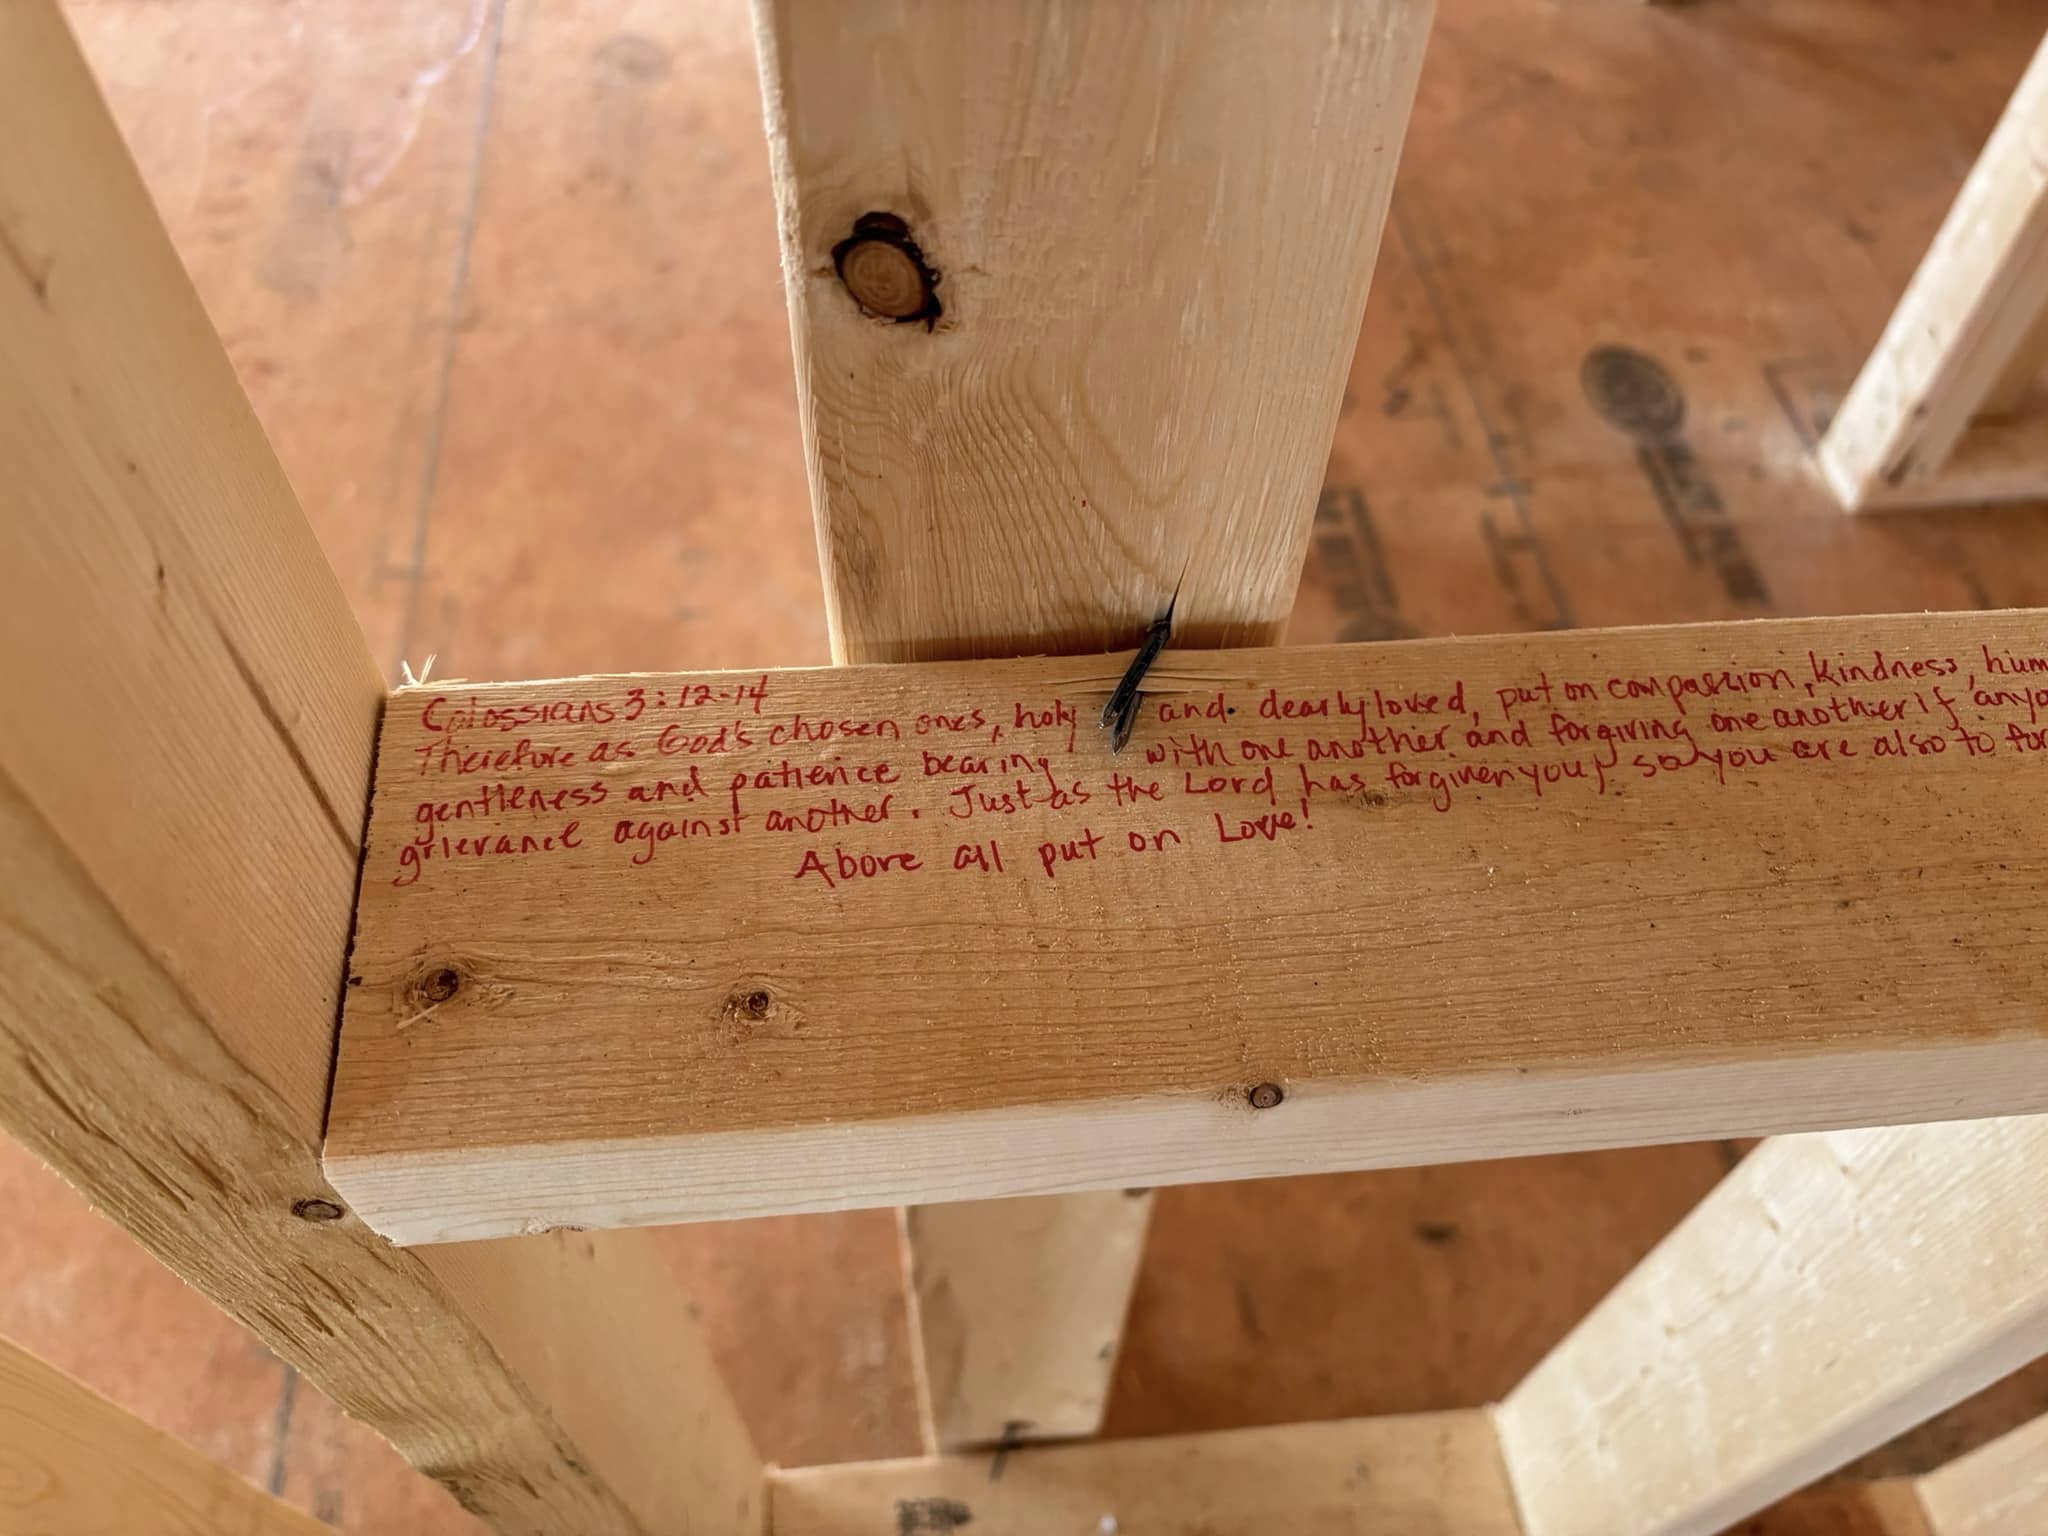 Colossians 3:12-14
Therefore as God's chosen ones, holy and dearly loved, put on compassion, kindness, hum
gentleness and patience bearing with one another and forgiving one another if anyo
grievance against another. Just as the Lord has forgiven you, so you are also to for
Above all put on Love!